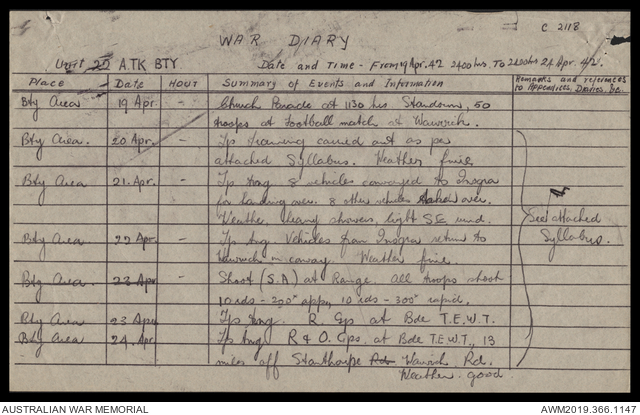 C. 2118
WAR DIARY
Unit 20 A.TK BTY Date and Time - From 19 Apr. 42 2400 hrs. To 2400 hrs 24 Apr. 42.
Place Date HOUR Summary of Events and Information Remarks and references to Appendices, Diaries, etc.
Bty Area 19 Apr. - Church Parade at 1130 hrs Standown, 50
troops at football match at Warwick.
Bty Area. 20 Apr. - Tps training carried out as per
attached Syllabus. Weather fine.
Bty Area 21 Apr. - Tps tng 8 vehicles conveyed to
for handing over. 8 other vehicles taken over.
Weather showers, light SE wind.
See attached
Syllabus.
Bty Area 22 Apr. - Tps tng Vehicles from return to
Warwick in convoy. Weather fine.
Bty Area. 23 Apr - Shoot (S.A) at Range. All troops shoot
10 rds - 200x appn 10 rds - 300x rapid.
Bty Area 23 Apr Tps tng. R. Gps at Bde T.E.W.T.
Bty Area 24 Apr Tps tng R & O. Gps. at Bde T.E.W.T., 13
miles off Stanthorpe Rd. Warwick Rd.
Weather. good.
AUSTRALIAN WAR MEMORIAL AWM2019.366.1147